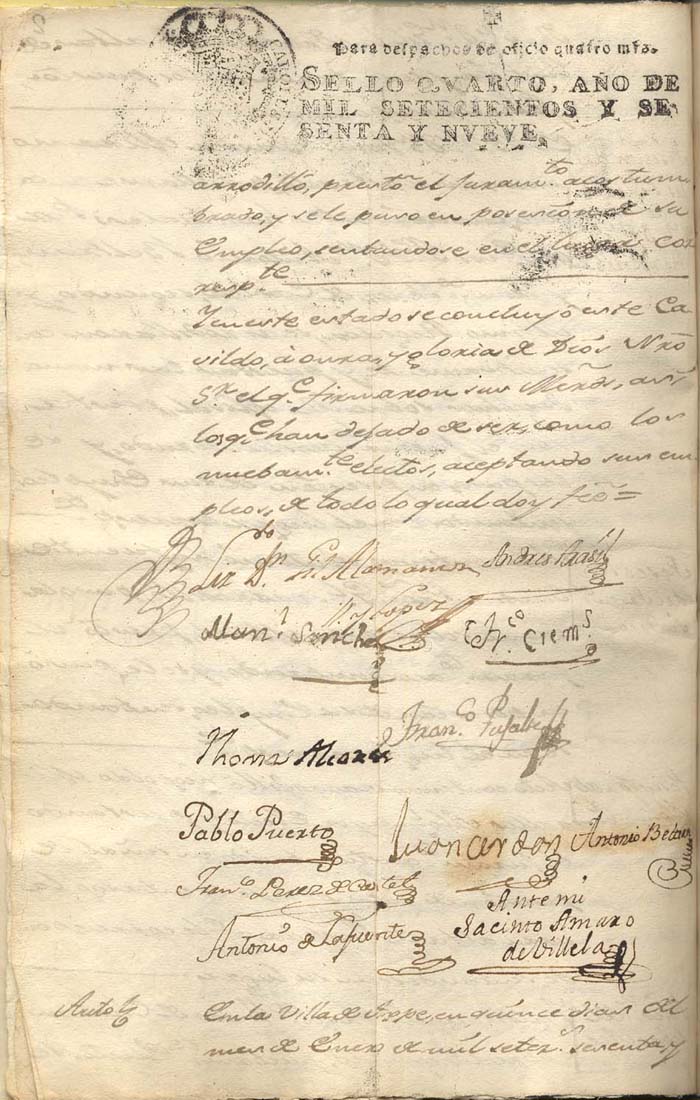 Para despachos de oficio quatro mrs.
SELLO QVARTO, AÑO DE
MIL SETECIENTOS Y SE
SENTA Y NVEVE.
arrodilló, prestó el Juram.to acostum
brado, y se le puso en posesión de su
Empleo, sentandose en el lugar cor
resp.te
Y en este estado se concluyó este Ca-
vildo, à onrra, y gloria de Diós Nrõ
S.r el q.e firmaron sus Mrds, así
los q.e han dejado de ser, como los
nuebam.te electos, aceptando sus em-
pleos, de todo lo qual doy feé =
Liz.do D.n Gil Alamanes
y Lopez
Andres
Man.l Sanchez
Fr.co Crem.s
Fran.co
Thomas Alcaraz
Pablo Puerto
Juan
Antonio
Fran.co Perez de
Antonio de Lafuente
Ante mi
Jacinto Amaro
de Villela
Auto
En la Villa de Aspe, en quince dias del
mes de Enero de mil setez.s sesenta y